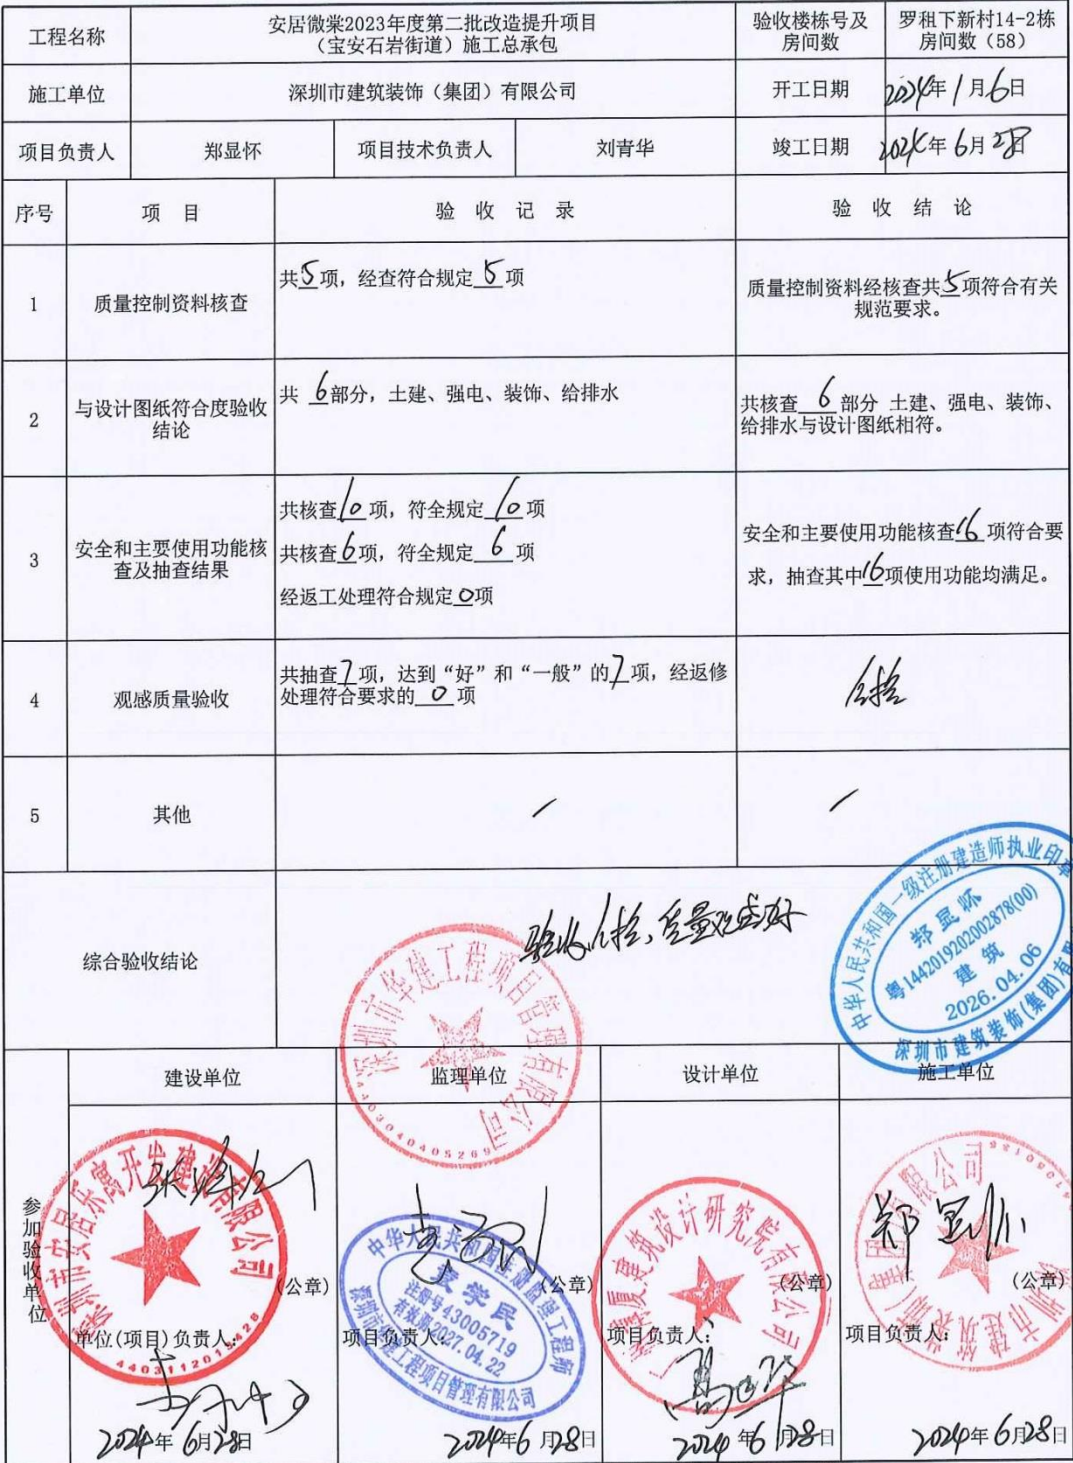 工程名称
安居微棠2023年度第二批改造提升项目
（宝安石岩街道）施工总承包
验收楼栋号及
房间数
罗租下新村14-2栋
房间数（58）
施工单位
深圳市建筑装饰（集团）有限公司
开工日期
2024年1月6日
项目负责人
郑显怀
项目技术负责人
刘青华
竣工日期
2024年6月28日
序号
项 目
验 收 记 录
验 收 结 论
1
质量控制资料核查
共5项，经查符合规定5项
质量控制资料经核查共5项符合有关
规范要求。
2
与设计图纸符合度验收
结论
共 6部分，土建、强电、装饰、给排水
共核查 6 部分 土建、强电、装饰、
给排水与设计图纸相符。
3
安全和主要使用功能核
查及抽查结果
共核查10项，符全规定10项
共核查6项，符全规定 6 项
经返工处理符合规定0项
安全和主要使用功能核查16项符合要
求，抽查其中16项使用功能均满足。
4
观感质量验收
共抽查7项，达到“好”和“一般”的7项，经返修
处理符合要求的 0 项
合格
5
其他
综合验收结论
验收合格，质量观感好
中华人民共和国一级注册建造师执业印章
郑显怀
粤1442019202002878(00)
建筑
2026.04.06
深圳市建筑装饰(集团)有限
深圳市华建工程项目管理有限公司
4403040405269
参加验收单位
建设单位
监理单位
设计单位
施工单位
深圳市安居乐寓开发建设有限公司
(公章)
单位(项目)负责人:
2024年 6月28日
中华人民共和国注册监理工程师
李学民
注册号43005719
有效期2027.04.22
深圳市华建工程项目管理有限公司
(公章)
项目负责人:
2024年6月28日
建筑设计研究院有限公司
(公章)
项目负责人:
2024年6月28日
郑显怀
深圳市建筑装饰(集团)有限公司
(公章)
项目负责人:
2024年6月28日